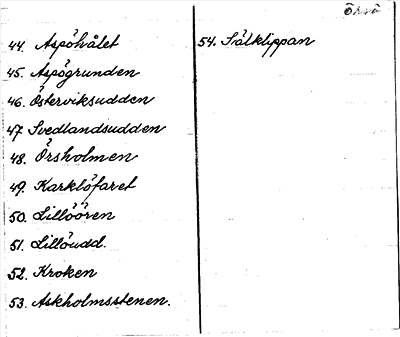 Örsö
44. Aspöhålet
45. Aspögrunden
46. Österviksudden
47. Svedlandsudden
48. Örsholmen
49. Karklöfaret
50. Lillöören
51. Lillöudd.
52. Kroken
53. Askholmsstenen.
54. Sälklippan